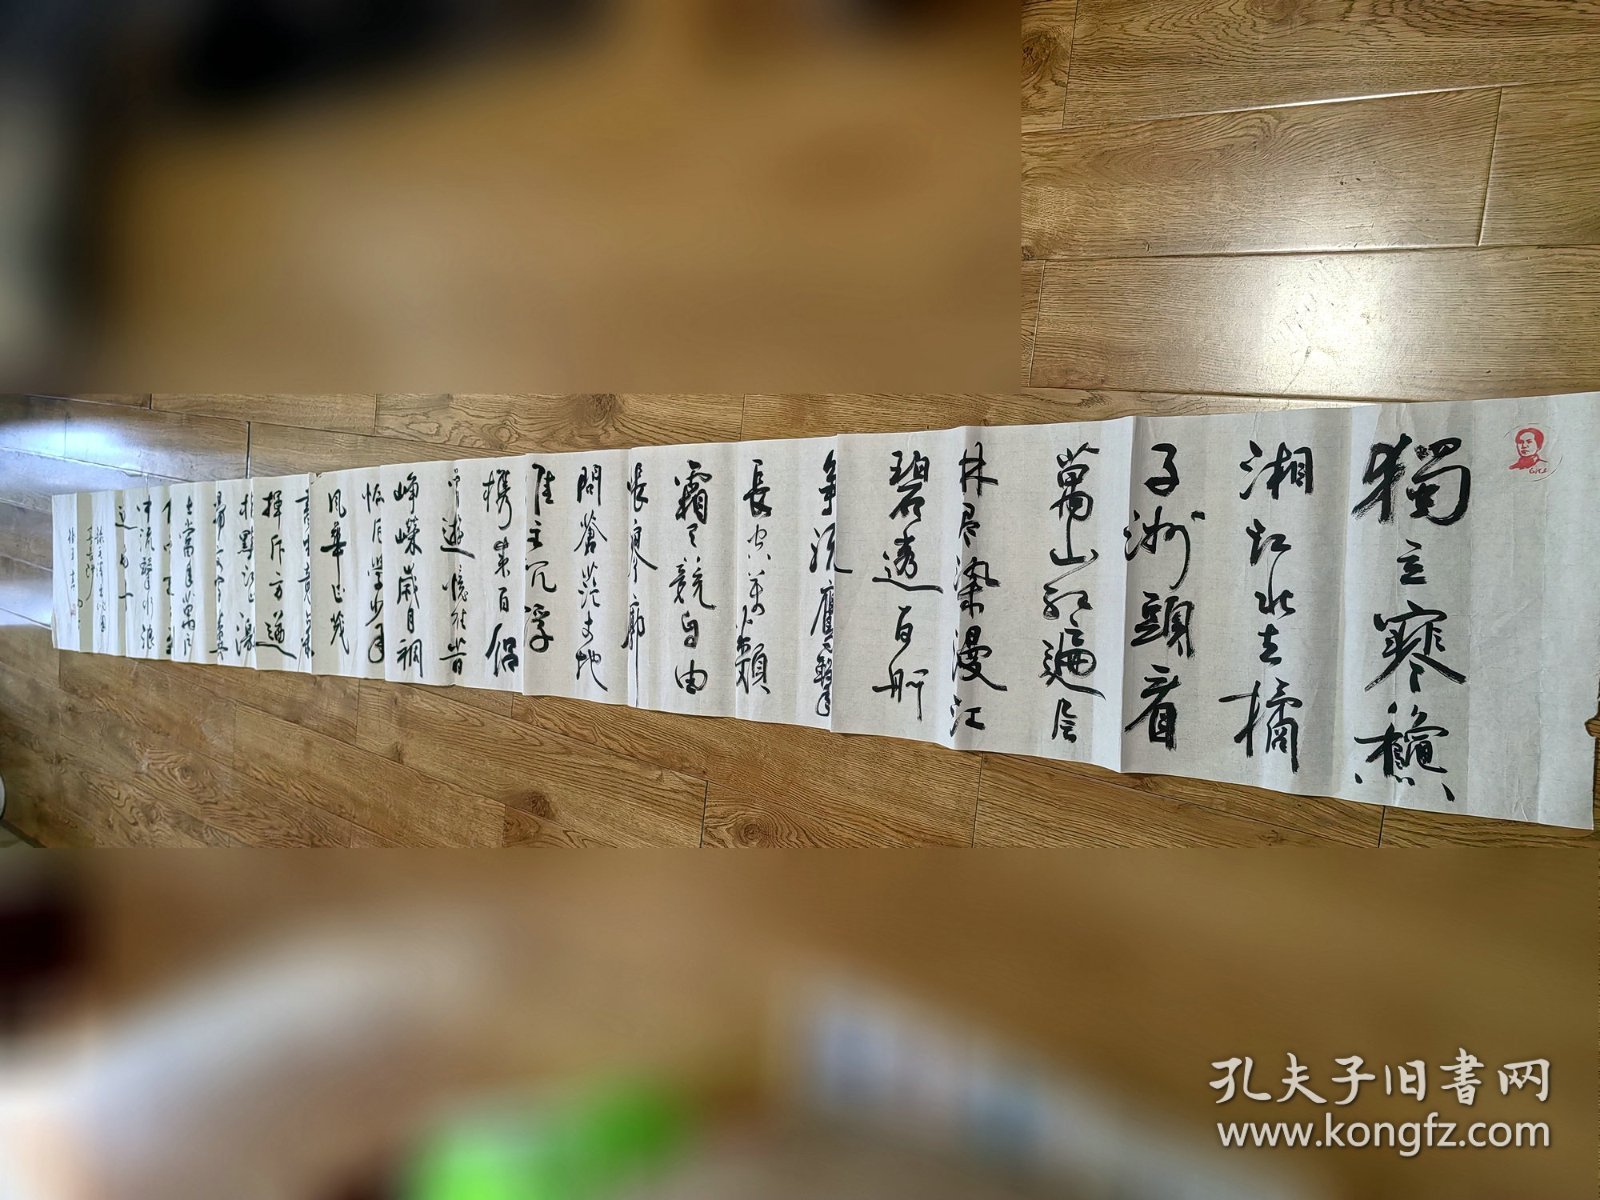 獨立寒龝
湘江北去橘
子洲頭看
萬山紅遍層
林尽染漫江
碧透百舸
爭流鷹擊
長空
萬類
霜天競自由
悵寥廓
問蒼茫大地
誰主沉浮
携來百侣
曾遊憶往昔
崢嶸歲月稠
恰同學少年
風華正茂
書生意氣
揮斥方遒
指點江山激
揚文字糞
土當年萬户
中流擊水浪
遏飛
孔夫子旧書网
www.kongfz.com